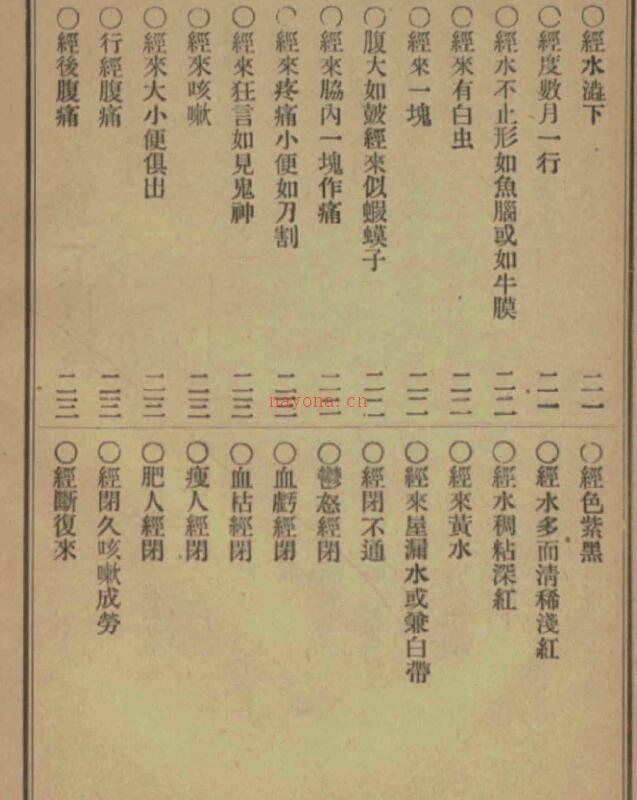 ○經水澁下 二一
○經度數月一行 二一
○經水不止形如魚腦或如牛膜 二二
○經來有白虫 二二
○經來一塊 二二
○腹大如皷經來似蝦蟆子 二二
○經來脇內一塊作痛 二二
○經來疼痛小便如刀割
○經來狂言如見鬼神 二三
○經來咳嗽 二三
○經來大小便俱出 二三
○行經腹痛 二三
○經後腹痛 二三
○經色紫黑
○經水多而淸稀淺紅
○經水稠粘深紅
○經來黃水
○經來屋漏水或兼白帶
○經閉不通
○鬱怒經閉
○血虧經閉
○血枯經閉
○瘦人經閉
○肥人經閉
○經閉久咳嗽成勞
○經斷復來
nayona.cn